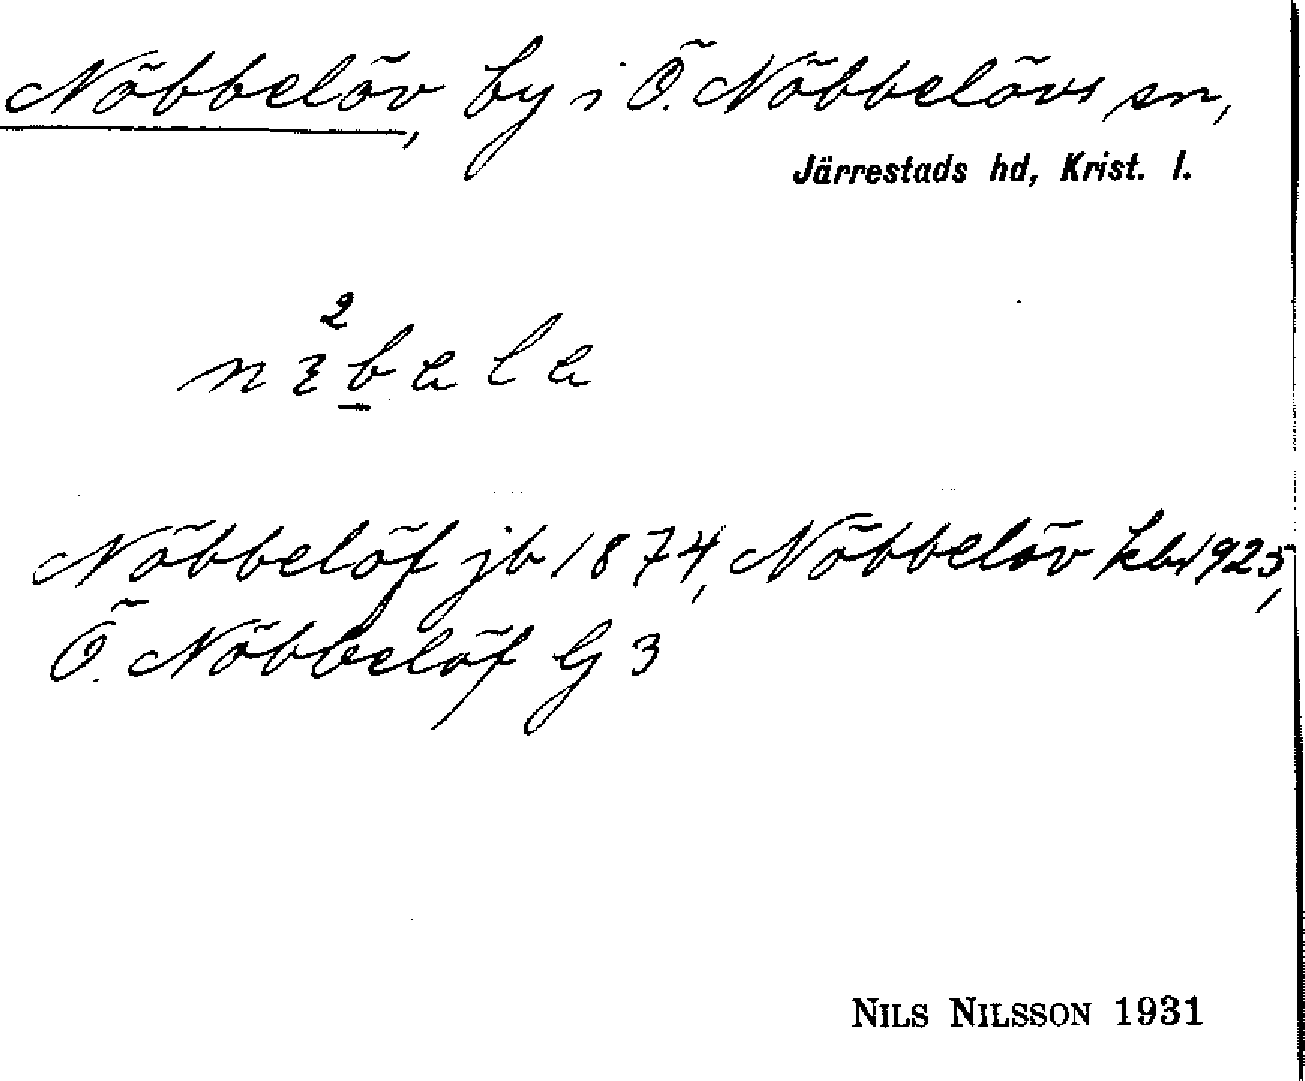 Nöbbelöv, by i Ö. Nöbbelövs sn,
Järrestads hd, Krist. l.
Nöbbelöf jb 1874, Nöbbelöv kb 1925,
Ö. Nöbbelöf G 3
NILS NILSSON 1931